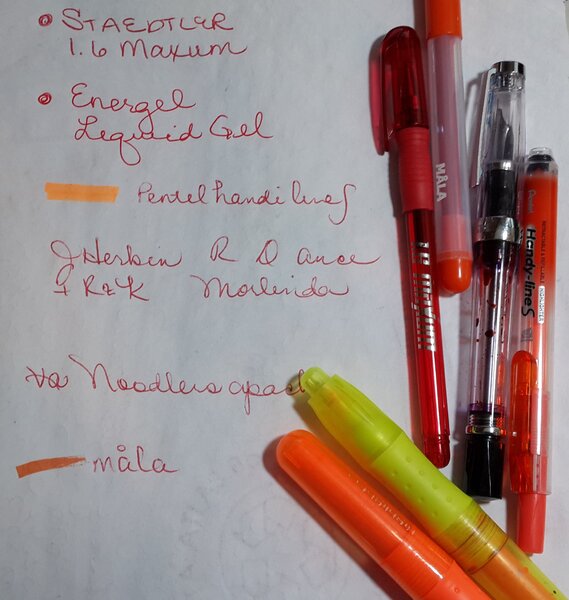 STAEDTLER
1.6 Maxum
Energel
Liquid Gel
Pentel handi lines
J Herbin R D ance
+ R&K Morlinda
Noodlers apac
måla
MÅLA
1.6 MAXUM
Pentel Handy-lineS
HIGHLIGHTER